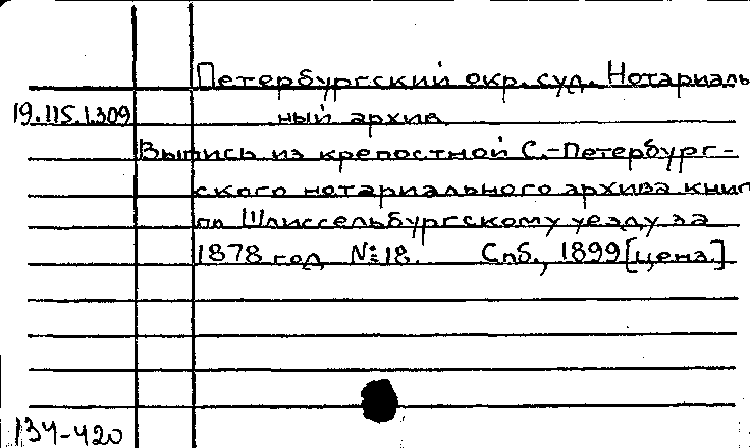 Петербургский окр. суд. Нотариаль
19.115.1.309 ный архив.
Выпись из крепостной С.-Петербург-
ского нотариального архива книг
по Шлиссельбургскому уезду за
1878 год №18. Спб., 1899 [цена.]
134-420